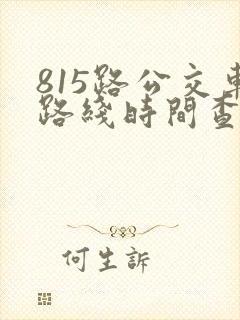 815路公交車
路綫時間查
何生訴